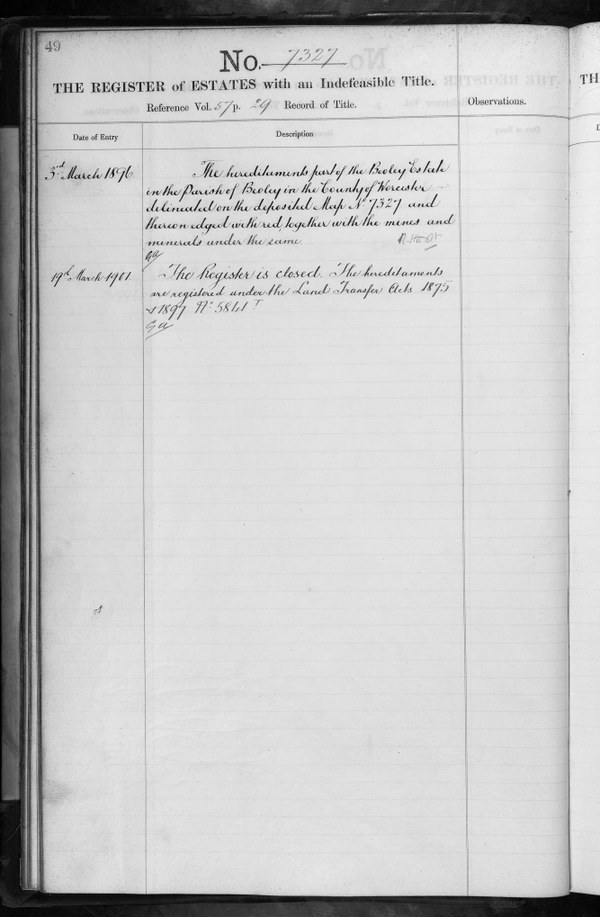 49
No. 7327
THE REGISTER of ESTATES with an Indefeasible Title.
Reference Vol. 57 p. 29 Record of Title.
Observations.
Date of Entry
Description
3rd March 1896
The hereditaments part of the Beoley Estate
in the Parish of Beoley in the County of Worcester
delineated on the deposited Map No 7327 and
thereon edged with red, together with the mines and
minerals under the same.
19th March 1901
The Register is closed. The hereditaments
are registered under the Land Transfer Acts 1875
& 1897 No 5861
TH